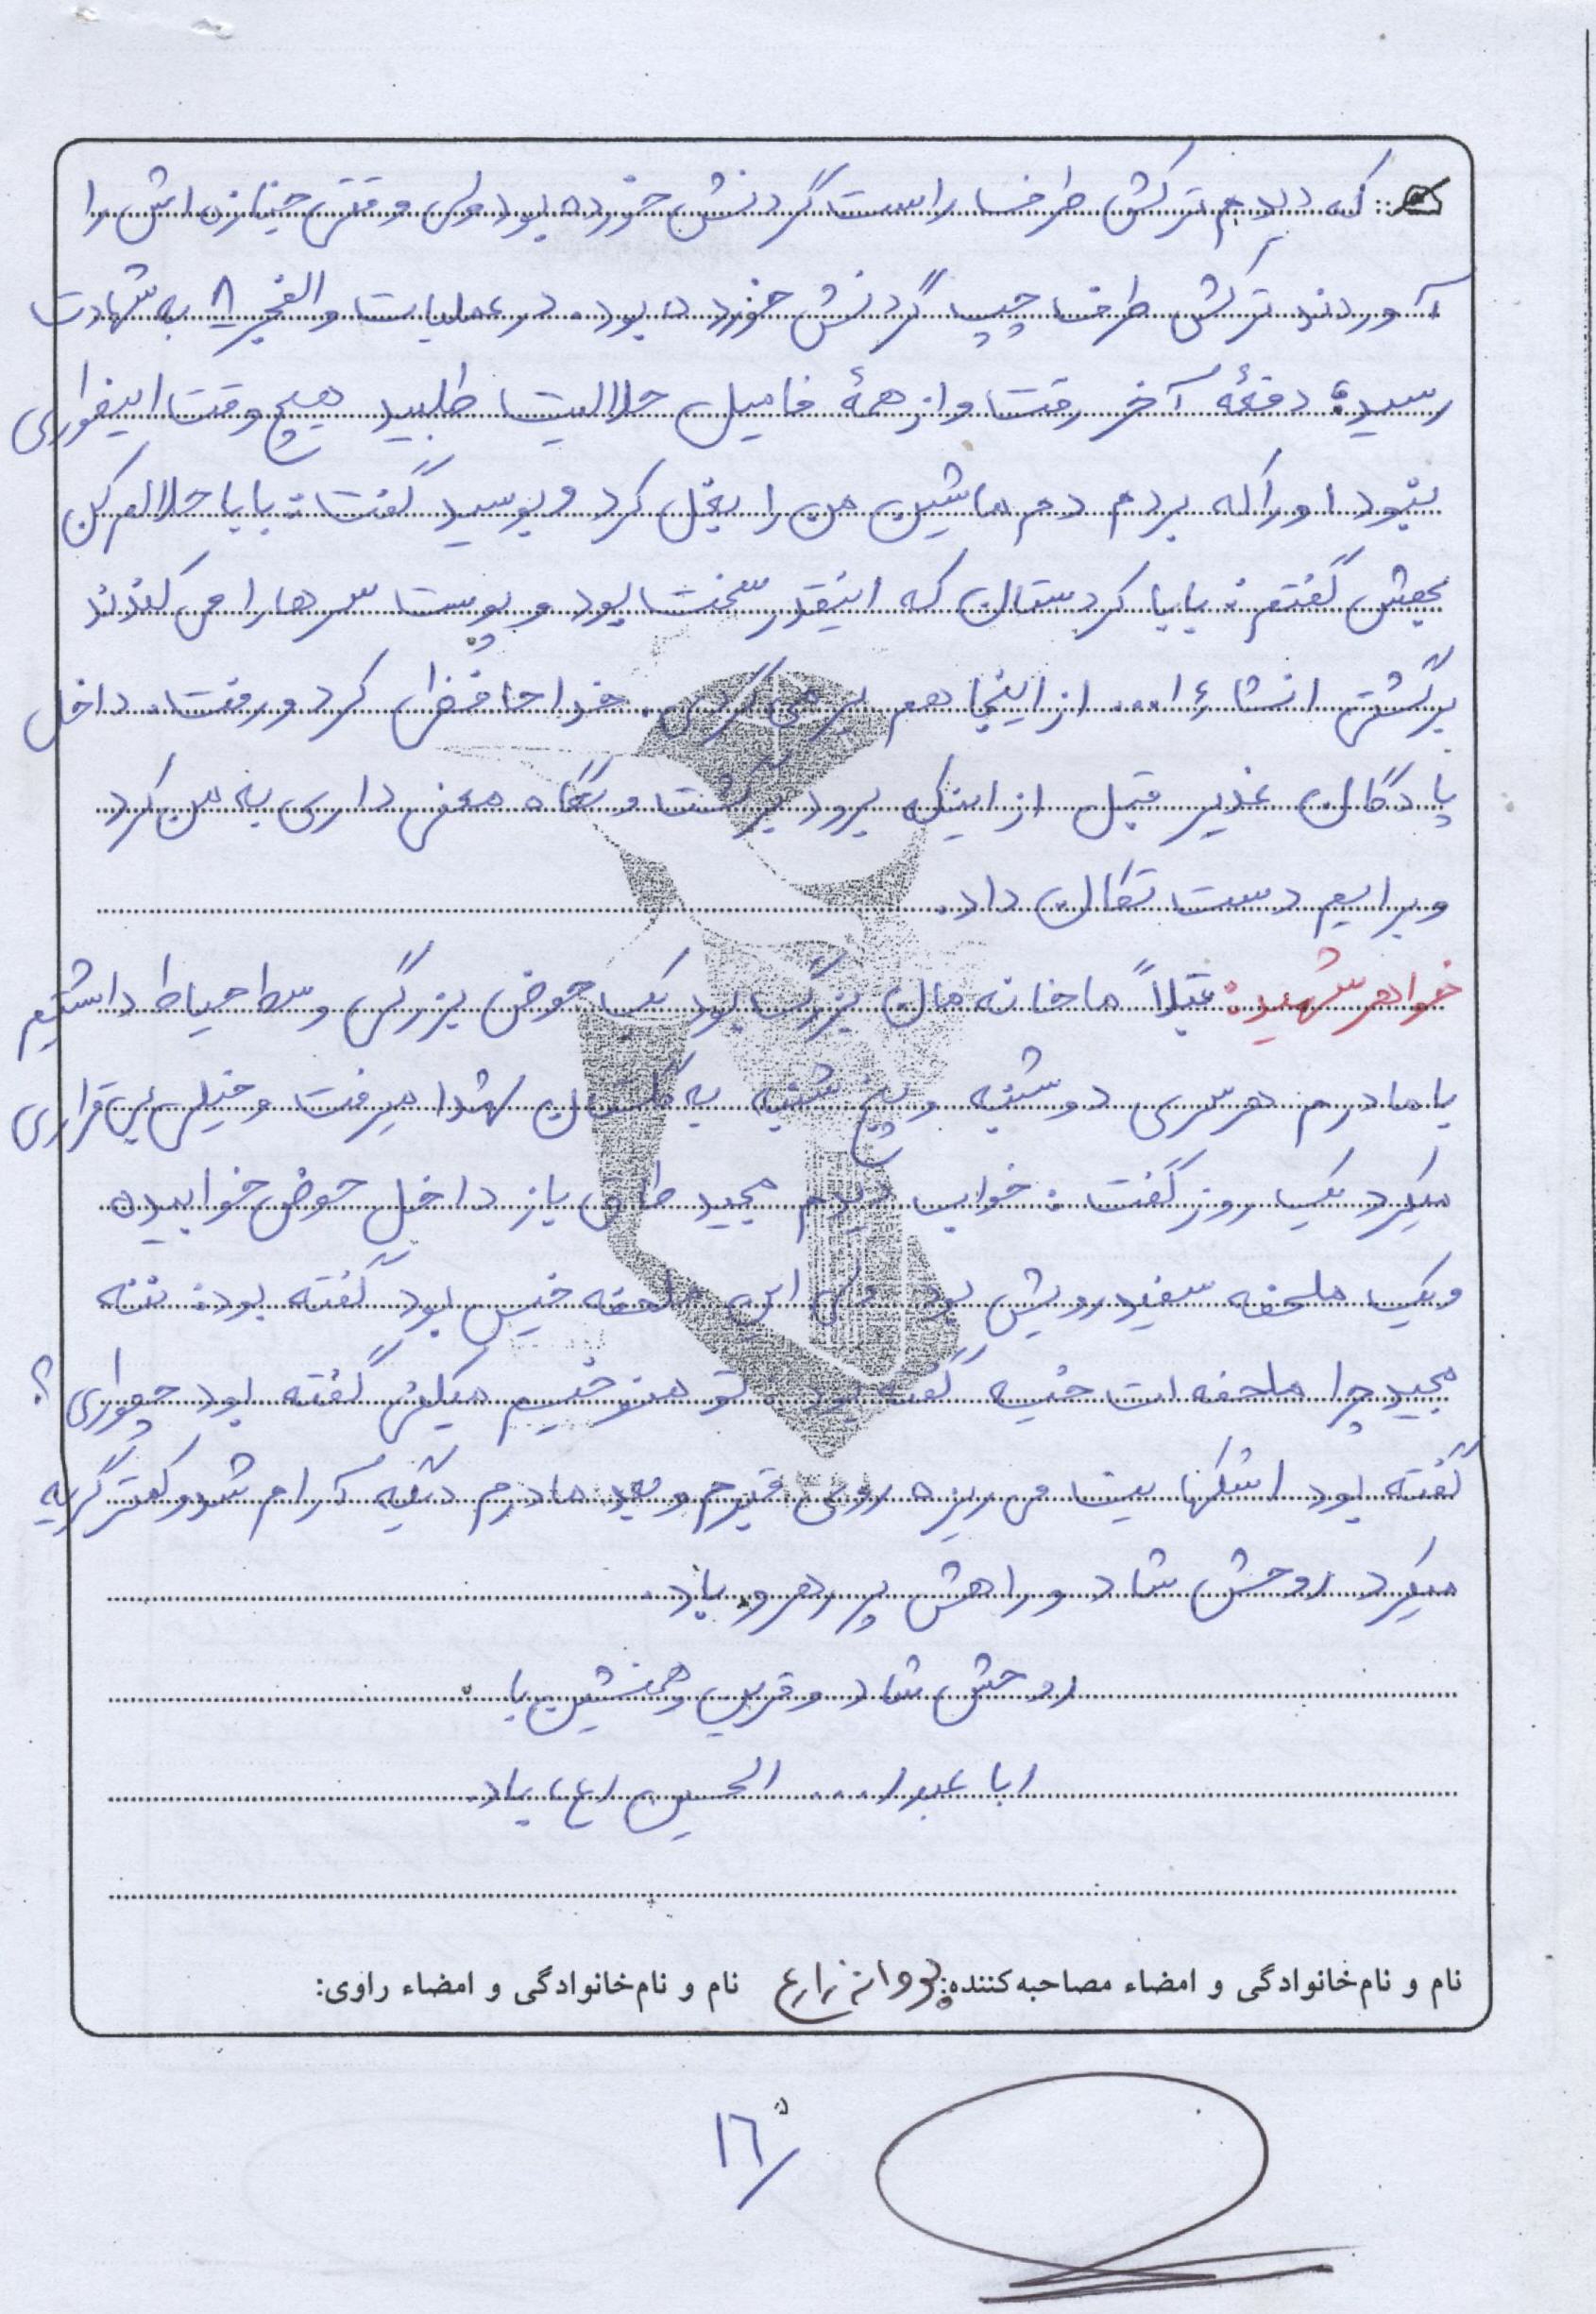 که دیدم ترکش طرف راست گردنش خورده بود ولی وقتی جنازه اش را
آوردند ترکش طرف چپ گردنش خورده بود. در عملیات والفجر ۸ به شهادت
رسید. دفعهٔ آخر رفت و از همهٔ فامیل حلالیت طلبید هیچ وقت اینطوری
نبود او را که بردم دم ماشین من را بغل کرد و بوسید گفت: بابا حلالم کن
بهش گفتم: بابا کردستان که اینقدر سخت بود و پوست سرها را می کندند
برگشتی انشاءا... از اینجا هم برمی گردی. خداحافظی کرد و رفت. داخل
پادگان غدیر قبل از اینکه برود برگشت و نگاه معنی داری به من کرد
و برایم دست تکان داد.
خواهر شهید: قبلاً ما خانه مان بزرگ بود یک حوض بزرگی وسط حیاط داشتیم
با مادرم هر سری دوشنبه و پنج شنبه به گلستان شهدا میرفت و خیلی بی قراری
میکرد یک روز گفت: خواب دیدم مجید طاق باز داخل حوض خوابیده
و یک ملحفه سفید رویش بود ولی این ملحفه خیس بود گفته بود: ننه
مجید چرا ملحفه ات خیسه گفته بود: تو هنو خیسم میکنی گفته بود چطوری؟
گفته بود اشکهایت می ریزه روی قبرم و بعد مادرم دیگه آرام شد و کمتر گریه
میکرد روحش شاد و راهش پر رهرو باد.
روحش شاد و قرین و همنشین با
ابا عبدا... الحسین (ع) باد.
نام و نام‌خانوادگی و امضاء مصاحبه‌کننده: پروانه زارع نام و نام‌خانوادگی و امضاء راوی:
۱۶